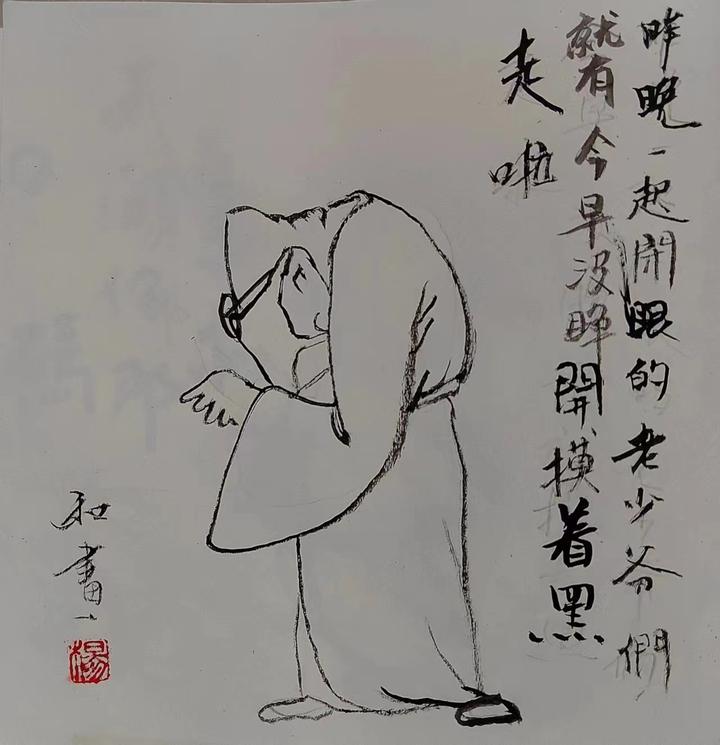 昨晚一起閉眼的老少爷們
就有今早没睁開摸着黑
走啦
和畫
楊